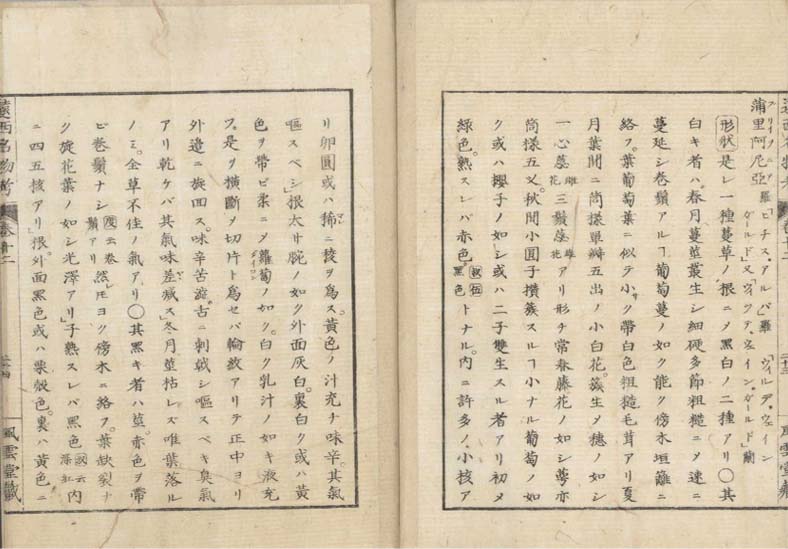 蒲里阿尼亞 羅「ビチス・アルバ」羅「ウイルデ・ウェイン
ブリイヲニア ガールド」又「ウィクテ・ウェイン・ガールド」蘭
形状 是レ一種蔓草ノ根ニメ黒白ノ二種アリ〇其
白キ者ハ春月蔓茎叢生シ細硬多節粗糙ニメ速ニ
蔓延シ巻鬚アルヿ葡萄蔓ノ如ク能ク傍木垣籬ニ
絡フ。葉葡萄葉ニ似テ小サク帯白色粗糙毛茸アリ夏
月葉間ニ筒様単瓣五出ノ小白花。簇生メ穂ノ如シ
一心蕊 雌花 三鬚蕊 雄花 アリ形チ常春藤花ノ如シ萼亦
筒様五叉。秋間小圓子攅簇スルヿ小ナル葡萄ノ如
ク或ハ櫻子ノ如シ或ハ二子雙生スル者アリ初メ
緑色。熟スレバ赤色。黒色トナル。内ニ許多ノ小核ア
遠西名物考 巻十二 二十三 風雲堂藏
リ卵圓或ハ稀ニ稜ヲ為ス。黄色ノ汁充チ味辛。其氣
嘔スベシ」根太サ腕ノ如ク外面灰白。裏白ク或ハ黄
色ヲ帯ビ柔ニメ蘿蔔ノ如ク。白ク乳汁ノ如キ液充
フ。是ヲ横斷メ切片ト為セバ輪紋アリテ正中ヨリ
外邉ニ旋回ス。味辛苦澁。舌ニ刺戟シ嘔スベキ臭氣
アリ乾ケバ其氣味差減ス」冬月茎枯レズ唯葉落ル
ノミ。全草不佳ノ氣アリ〇其黒キ者ハ茎。赤色ヲ帯
ビ巻鬚ナシ 一云巻鬚アリ 然𪜈ヨク傍木ニ絡フ。葉缺裂ナ
ク旋花葉ノ如シ光澤アリ」子熟スレバ黒色 一云深紅 内
ニ四五核アリ」根。外面黒色或ハ栗殻色。裏ハ黄色ニ
遠西名物考 巻十二 二十四 風雲堂藏